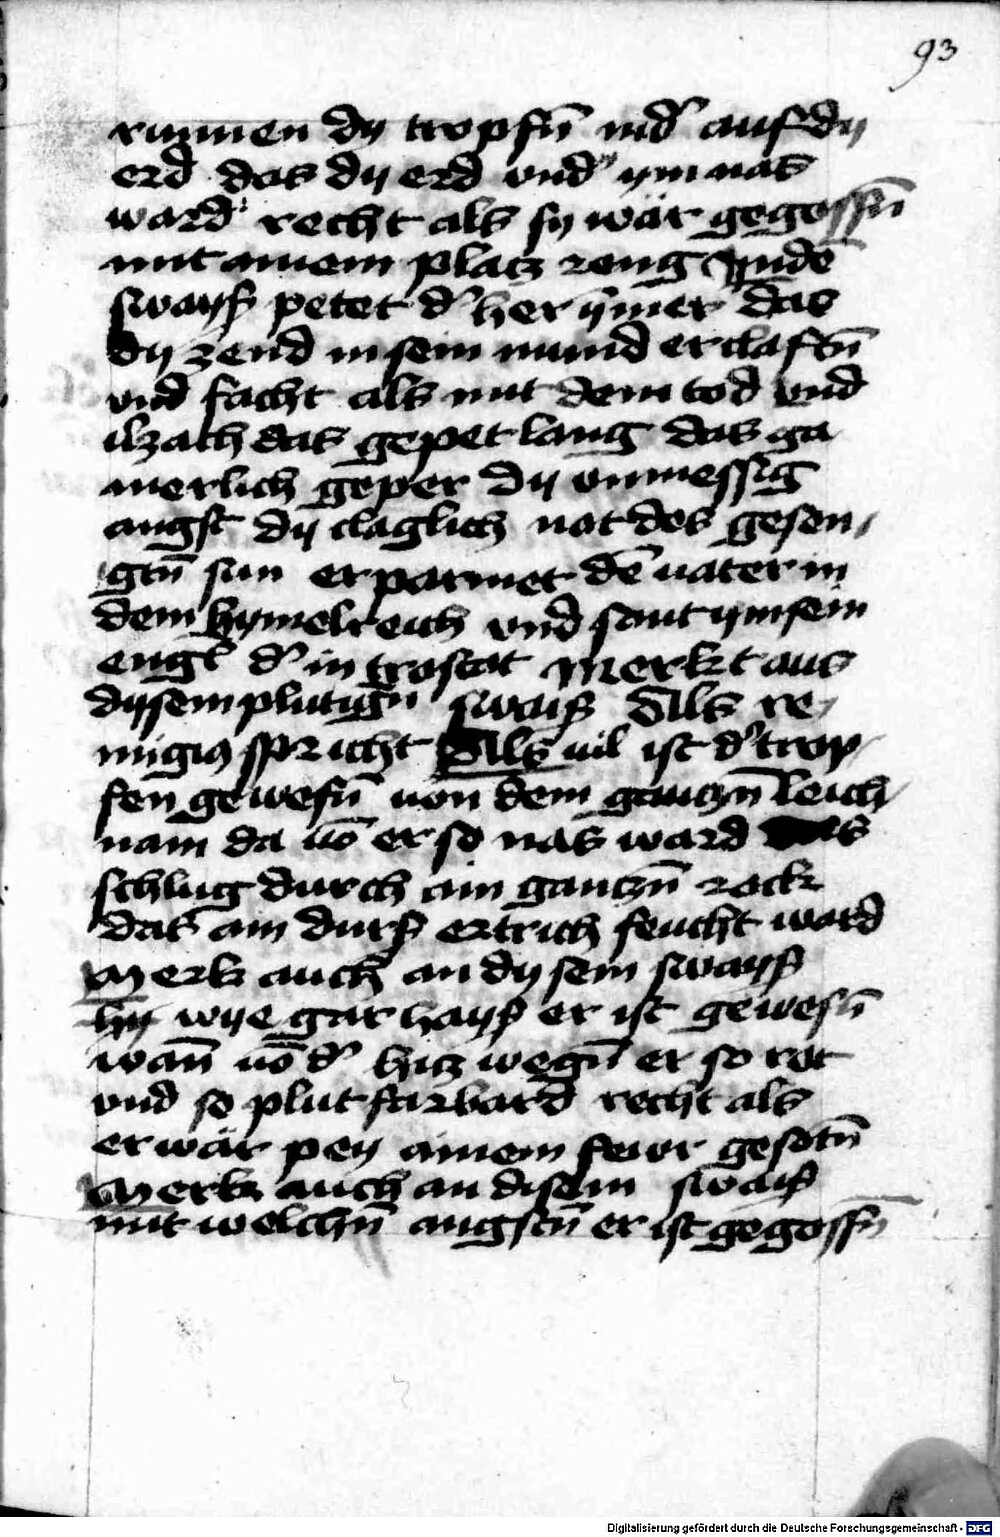 93
rinnen dy tropfn̄ nid' auf dy
erd das dy erd vnd' ym nas
ward' recht als sy wär gegossn̄
mit ainem platz reng Inde
swayß petet d' her ymer das
dy zend in sein mund erclaftn̄
vnd facht als mit dem tod vnd
ilzach das gepet lang das ga
merlich geper dy vnmessig
angst dy claglich not des gesen,
gtn̄ sun erparmet dē vater in
dem hymelreich vnd sant ym sein
engl d' in trostat Merkt aus
dysem plutign̄ swaiß Als re,
migius spricht Als uil ist d' trop,
fen gewesn̄ von dem gantzn̄ leich,
nam da uō er so nas ward das
schlug durch ain gantzn̄ rock
das ain durß ertrich feucht ward
Merk auch an dysem swayß
hy wye gar hayß er ist gewesn̄
wan̄ uō d' hitz wegn̄ er so rot
vnd so plutfarbard recht als
er wär pey ainem fewr gesotn̄
Merk auch an disem swaiß
mit welchn̄ angstn̄ er ist gegossn̄
Digitalisierung gefördert durch die Deutsche Forschungsgemeinschaft - DFG